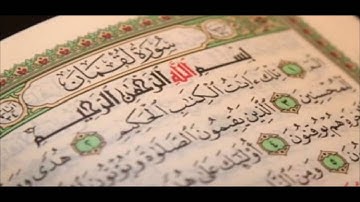 سُورَةُ لُقْمَانَ
بِسْمِ اللَّهِ الرَّحْمَٰنِ الرَّحِيمِ
١ تِلْكَ ءَايَٰتُ ٱلْكِتَٰبِ ٱلْحَكِيمِ ٢ هُدًى
لِّلْمُحْسِنِينَ ٣ ٱلَّذِينَ يُقِيمُونَ ٱلصَّلَوٰةَ وَيُؤْتُونَ
هُمْ يُوقِنُونَ ٤ أُو۟لَٰٓئِكَ عَلَىٰ
٥ وَمِنَ